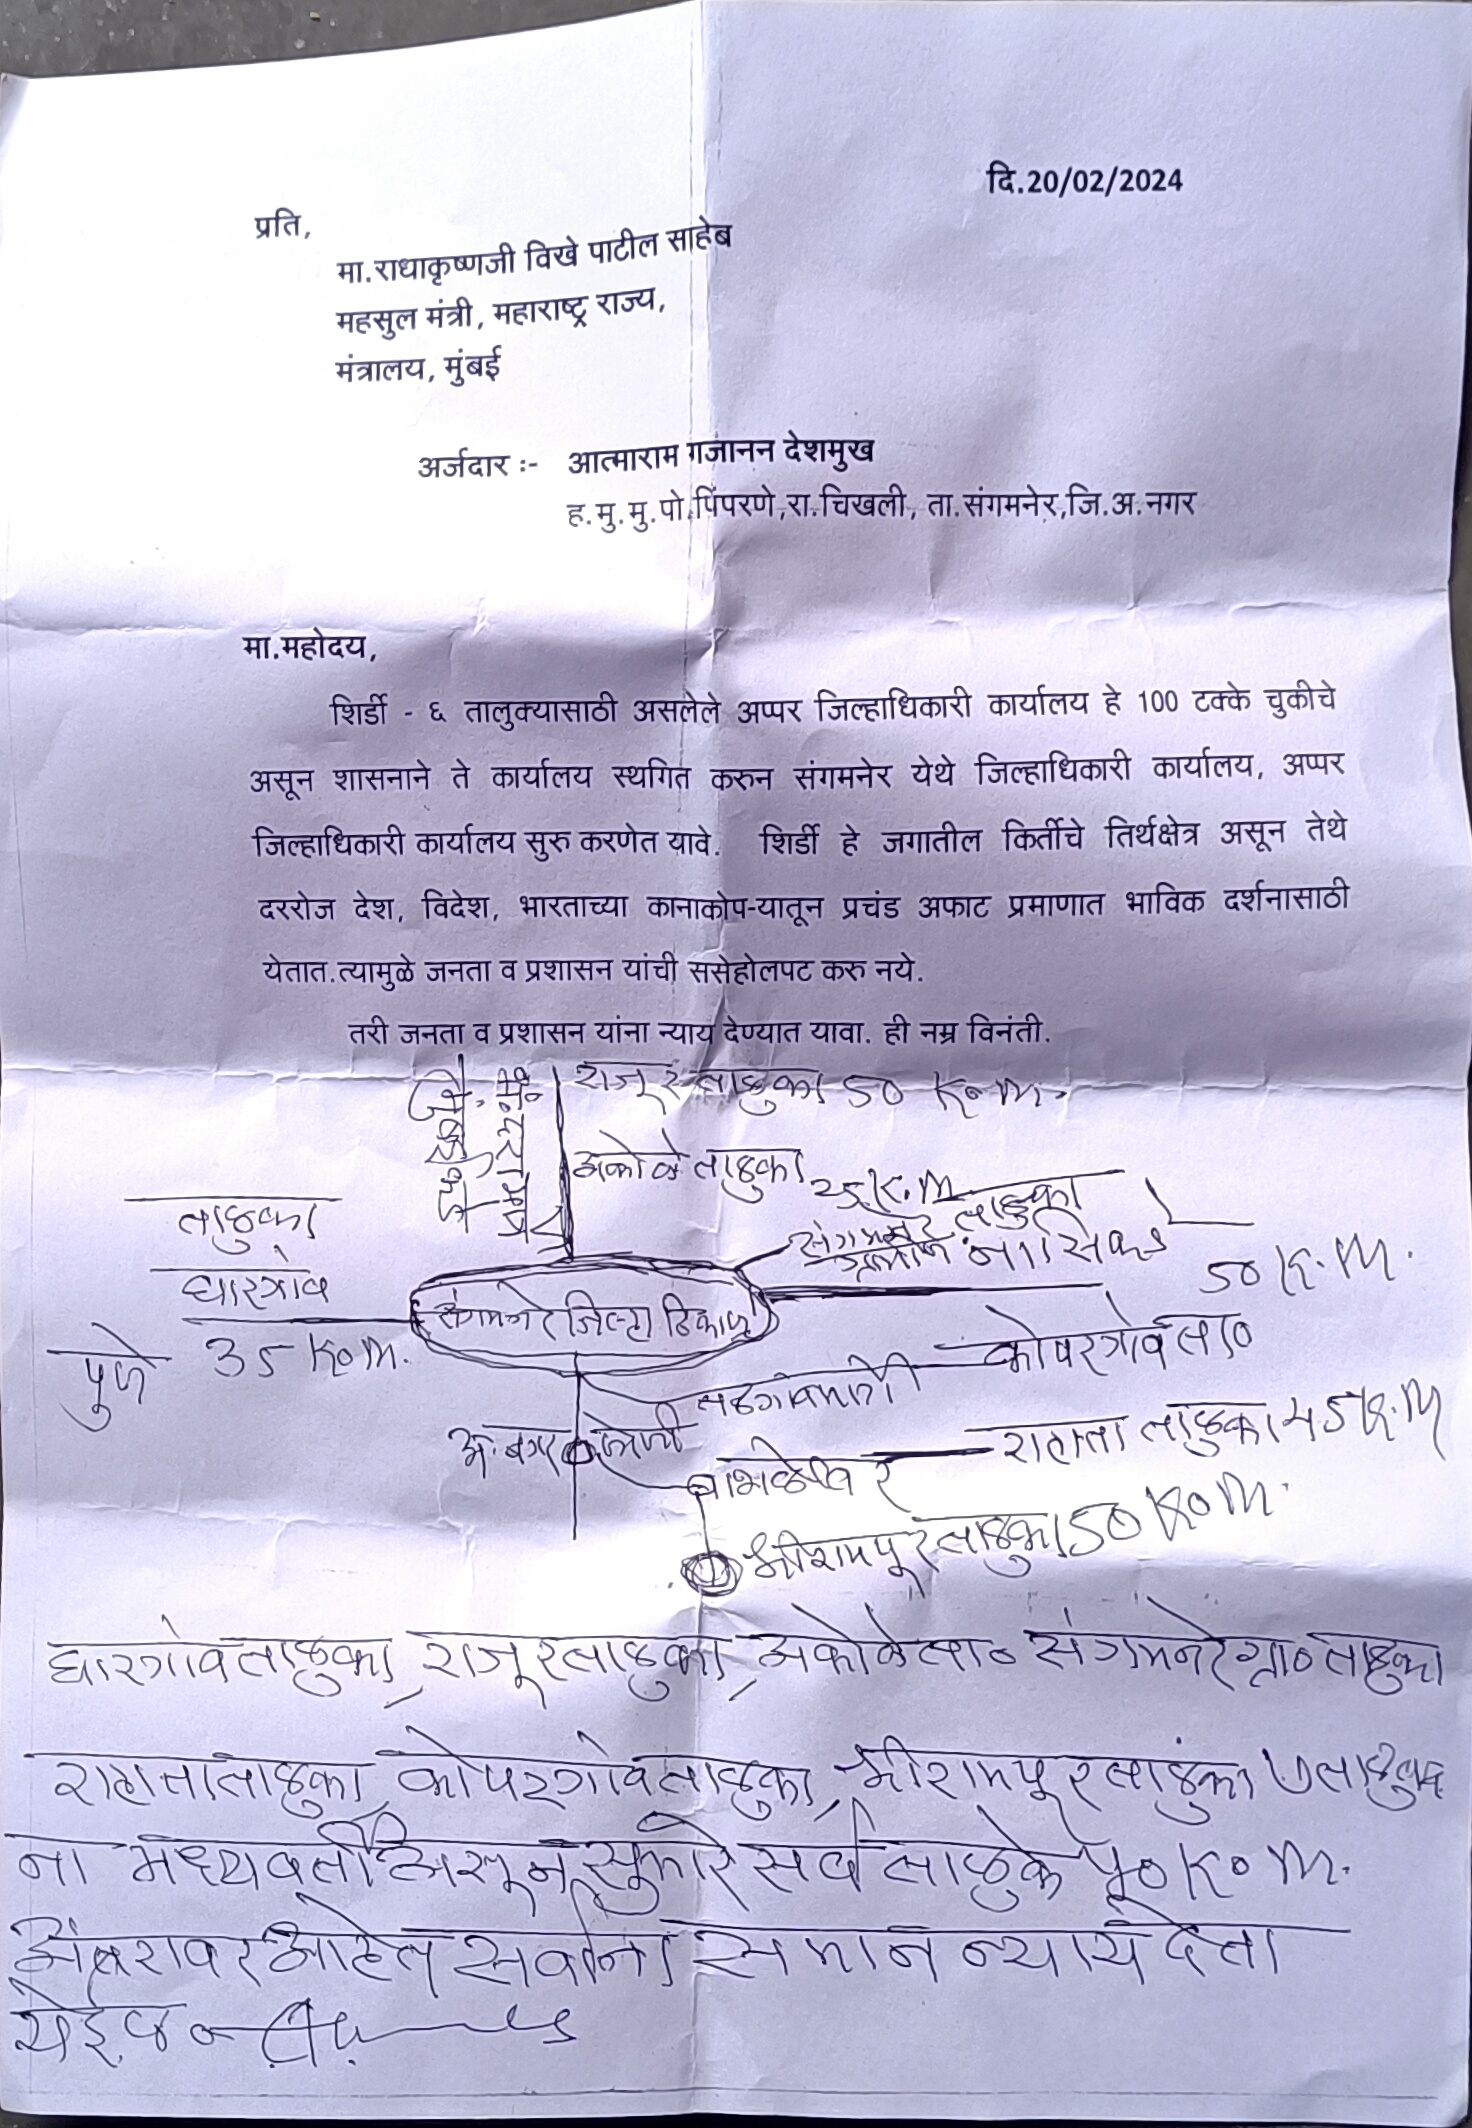 दि.20/02/2024
प्रति,
मा.राधाकृष्णजी विखे पाटील साहेब
महसुल मंत्री, महाराष्ट्र राज्य,
मंत्रालय, मुंबई
अर्जदार :- आत्माराम गजानन देशमुख
ह.मु.मु.पो.पिंपरणे,रा.चिखली, ता.संगमनेर,जि.अ.नगर
मा.महोदय,
शिर्डी - ६ तालुक्यासाठी असलेले अप्पर जिल्हाधिकारी कार्यालय हे 100 टक्के चुकीचे
असून शासनाने ते कार्यालय स्थगित करुन संगमनेर येथे जिल्हाधिकारी कार्यालय, अप्पर
जिल्हाधिकारी कार्यालय सुरु करणेत यावे. शिर्डी हे जगातील किर्तीचे तिर्थक्षेत्र असून तेथे
दररोज देश, विदेश, भारताच्या कानाकोप-यातून प्रचंड अफाट प्रमाणात भाविक दर्शनासाठी
येतात.त्यामुळे जनता व प्रशासन यांची ससेहोलपट करु नये.
तरी जनता व प्रशासन यांना न्याय देण्यात यावा. ही नम्र विनंती.
राजूर तालुका 50 K.M.
अकोले तालुका 25 K.M.
संगमनेर तालुका
नासिक
50 K.M.
तालुका
घारगांव
पुणे 35 K.M.
संगमनेर जिल्हा ठिकाण
तळेगांव मार्गे कोपरगांव ता०
अ. नगर लोणी
बाभळेश्वर राहाता तालुका 45 K.M
श्रीरामपूर तालुका 50 K.M.
घारगांव तालुका, राजूर तालुका, अकोले ता० संगमनेर ग्रा० तालुका
राहाता तालुका, कोपरगांव तालुका, श्रीरामपूर तालुका ७ तालुक्यां
ना मध्यवर्ती असून सुमारे सर्व तालुके ५० K.M.
अंतरावर आहेत सर्वांना समान न्याय देता
येईल